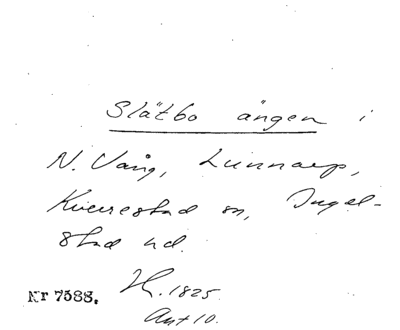 Slätbo ängen i
N. Vång, Lunnarp,
Kverrestad sn, Ingel-
stad hd.
Nr 7588. H. 1825
Akt 10.